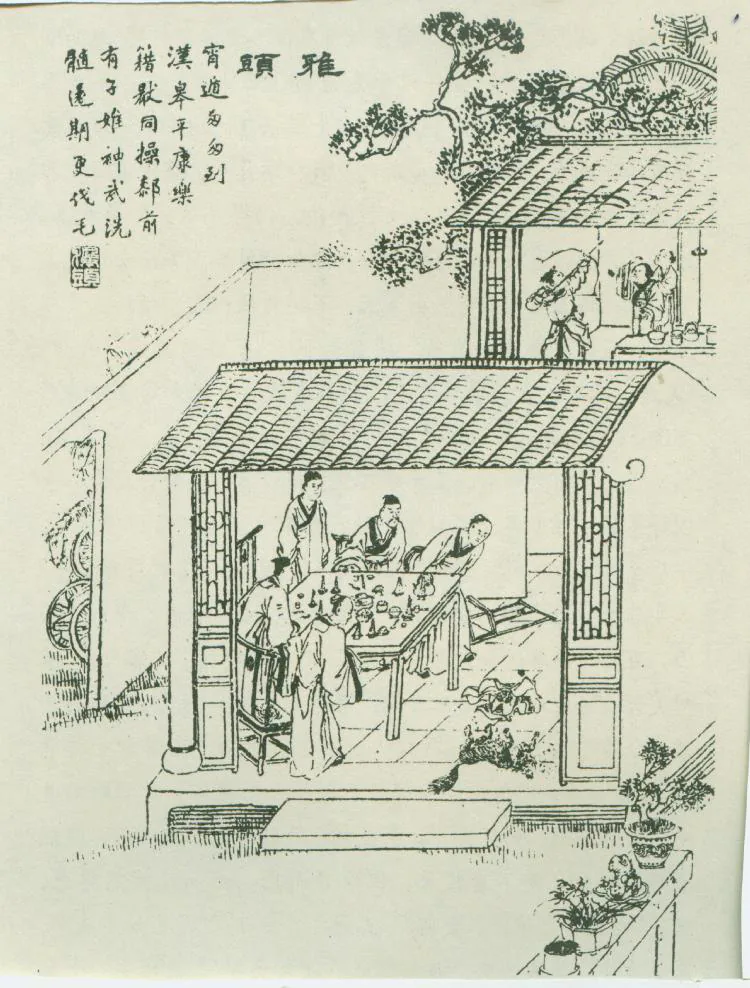 雅頭
宵遁匆匆到
漢皋平康樂
籍厭同操厀前
有子雄神武洗
髓還期更伐毛